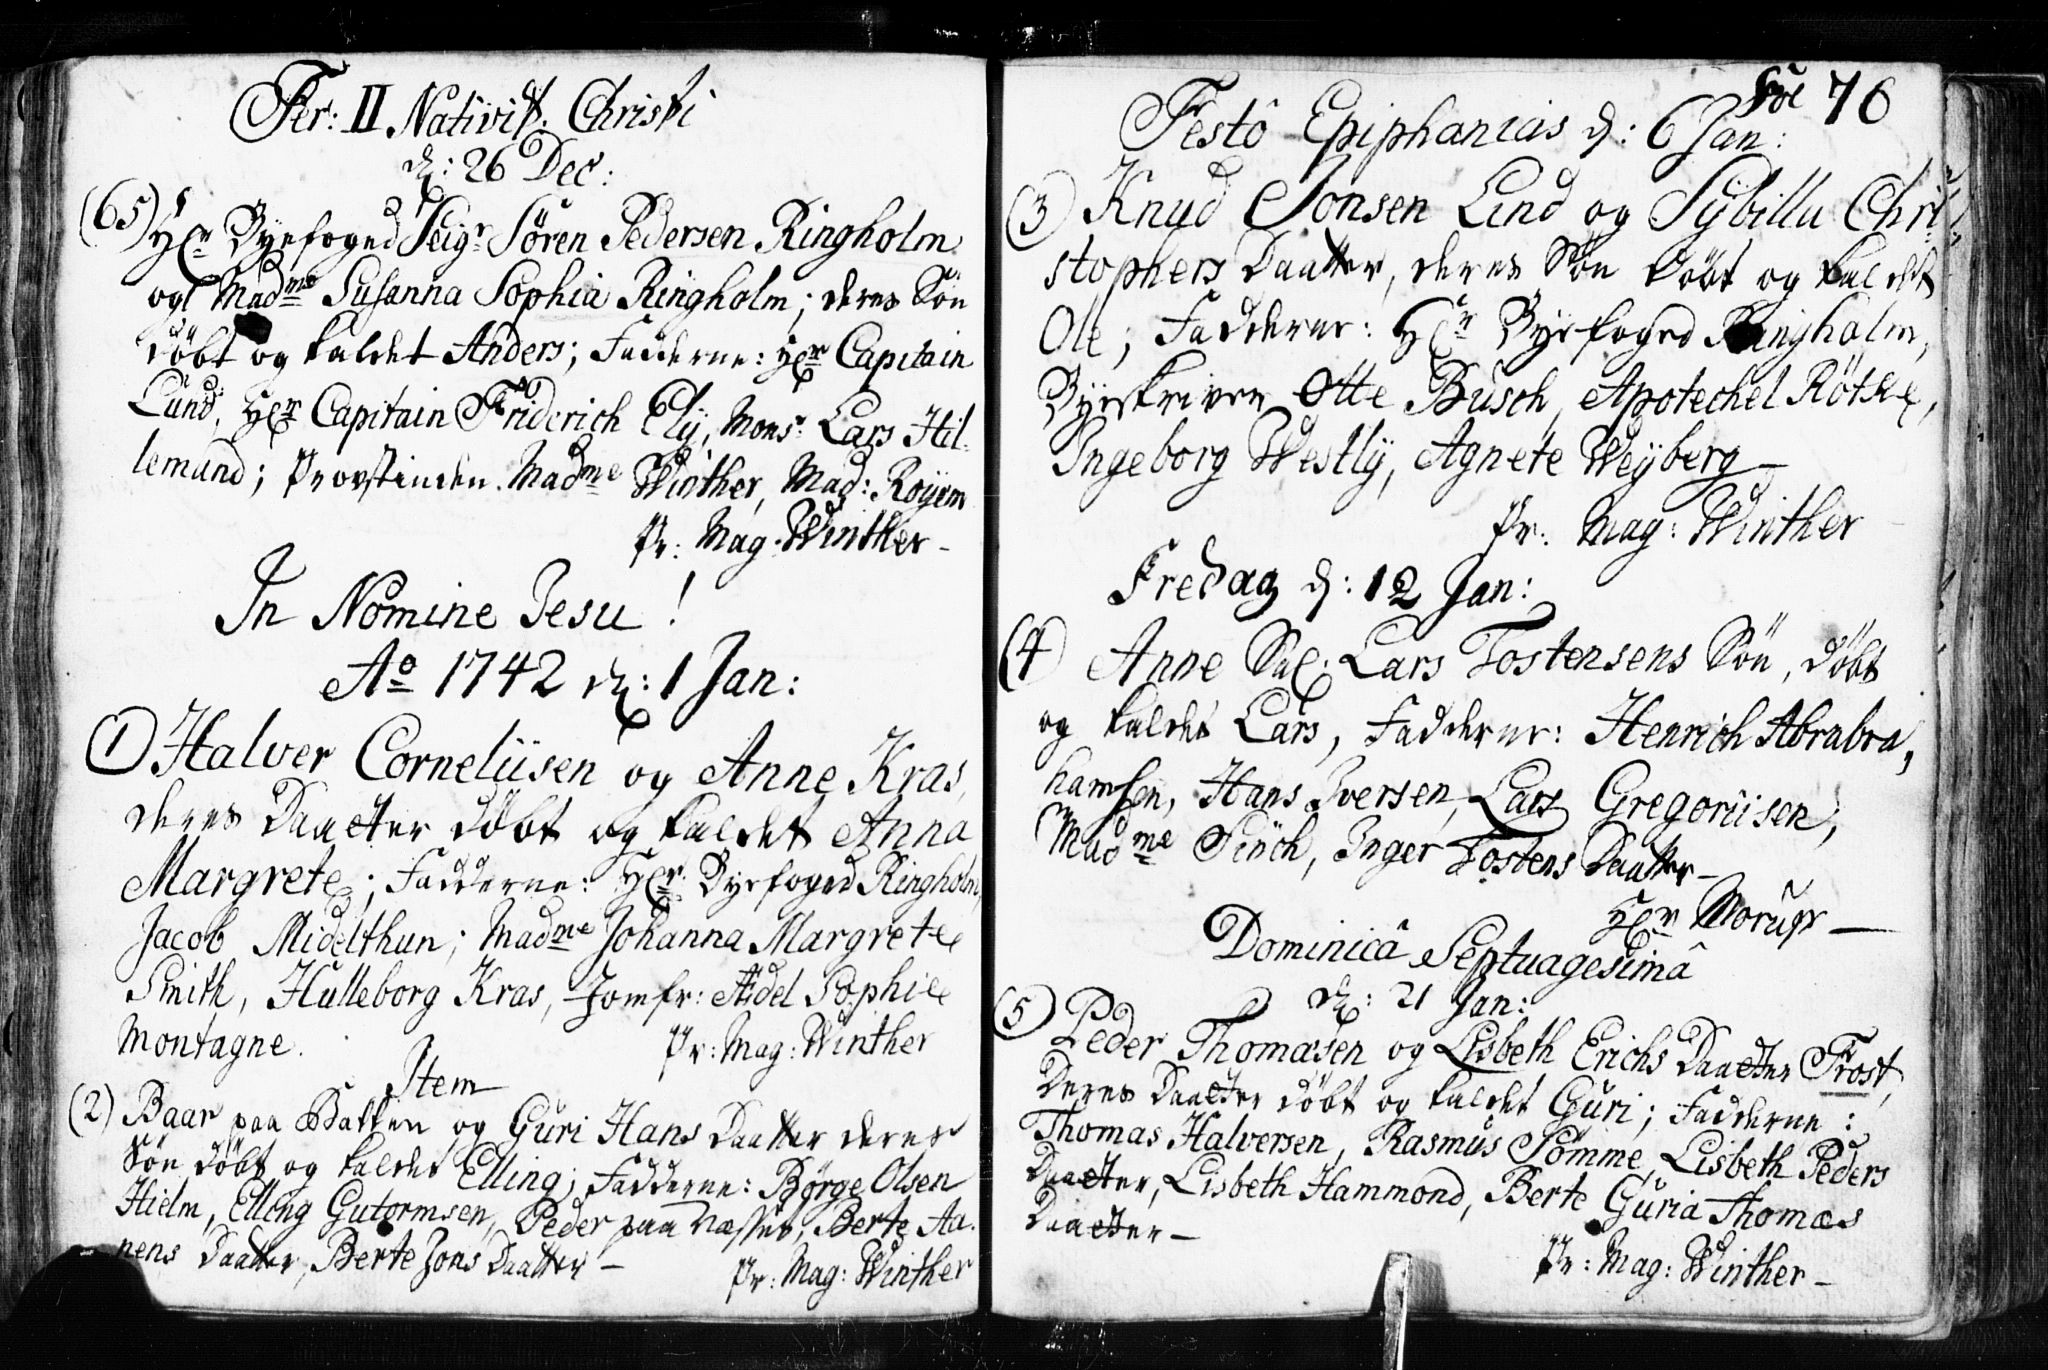 Fer: II Nativit. Christi
d: 26 Dec:
(65) Hr Byefoged Seigr Sören Pedersen Ringholm
og Madme Susanna Sophia Ringholm; deres Sön
döbt og kaldet Anders; Fadderne: Hr Capitain
Lund, Hr Capitain Friderich Ely, Monsr: Lars Hil-
lemund; Provstinden Madme Winther, Mad: Royem
Pr: Mag: Winther-
In Nomine Jesu!
Ao 1742 d: 1 Jan:
1) Halver Corneliisen og Anne Kras,
deres Daatter döbt og kaldet Anna
Margrete; Fadderne: Hr Byefoged Ringholm,
Jacob Midelthun; Madme Johanna Margrete
Smith, Hulleborg Kras, Jomfr: Aidel Sophie
Montagne. Pr: Mag: Winther
Item
(2) Baar paa Bakken og Guri Hans Daatter deres
Sön döbt og kaldet Elling; Fadderne: Börge Olsen
Hielm, Elling Gutormsen, Peder paa Næsset, Berte Aa-
nens Daatter, Berte Jons Daatter -
Pr: Mag: Winther
Fol 76
Festô Epiphanias d: 6 Jan:
(3) Knud Jonsen Lind og Sybilla Chri-
stophers Daatter, deres Sön döbt og kaldet
Ole; Fadderne: Hr Byefoged Ringholm,
Byeskriver Otte Busch, Apotechel Rötke,
Ingeborg Westly, Agnete Weyberg -
Pr: Mag: Winther
Fredag d: 12 Jan:
(4) Anne Sal: Lars Tostensens Sön, döbt
og kaldet Lars, Fadderne: Henrich Abrabra,
hamsen, Hans Iversen, Lars Gregoriisen,
Madme Finch, Inger Tostens Daatter -
Hr Morup -
Dominicâ Septuagesimâ
d: 21 Jan:
(5) Peder Thomæsen og Lisbeth Erichs Daatter Frost,
Deres Daatter döbt og kaldet Guri; Fadderne:
Thomas Halversen, Rasmus Sömme, Lisbeth Peders
Daatter, Lisbeth Hammond, Berte Guria Thomæs
Daatter -
Pr: Mag: Winther -